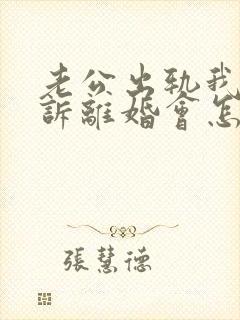 老公出軌我
訴離婚會怎
張慧德